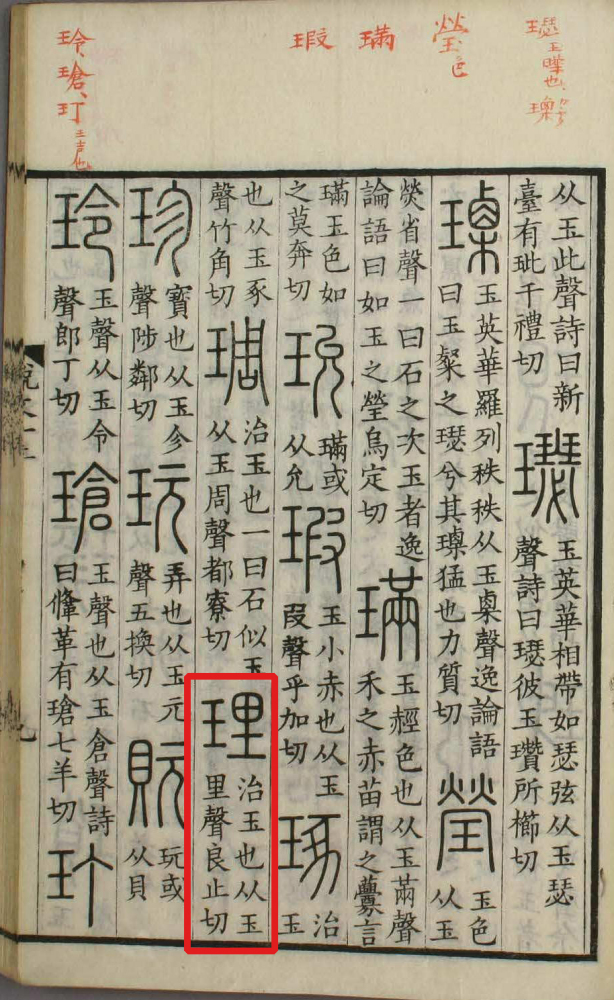 璱
瑩色
璊
瑕
玲瑲玎玉声也
从玉此聲詩曰新
臺有玼千禮切
璱
玉英華相帶如瑟弦从玉瑟
聲詩曰璱彼玉瓚所櫛切
瑮
玉英華羅列秩秩从玉㮚聲逸論語
曰玉粲之璱兮其瑮猛也力質切
瑩
玉色
从玉
熒省聲一曰石之次玉者逸
論語曰如玉之瑩烏定切
璊
玉䞓色也从玉㒼聲
禾之赤苗謂之虋言
璊玉色如
之莫奔切
玧
璊或
从允
瑕
玉小赤也从玉
叚聲乎加切
琢
治
玉
也从玉豖
聲竹角切
琱
治玉也一曰石似玉
从玉周聲都寮切
理
治玉也从玉
里聲良止切
珍
寶也从玉㐱
聲陟鄰切
玩
弄也从玉元
聲五換切
貦
玩或
从貝
玲
玉聲从玉令
聲郎丁切
瑲
玉聲也从玉倉聲詩
曰鞗革有瑲七羊切
玎